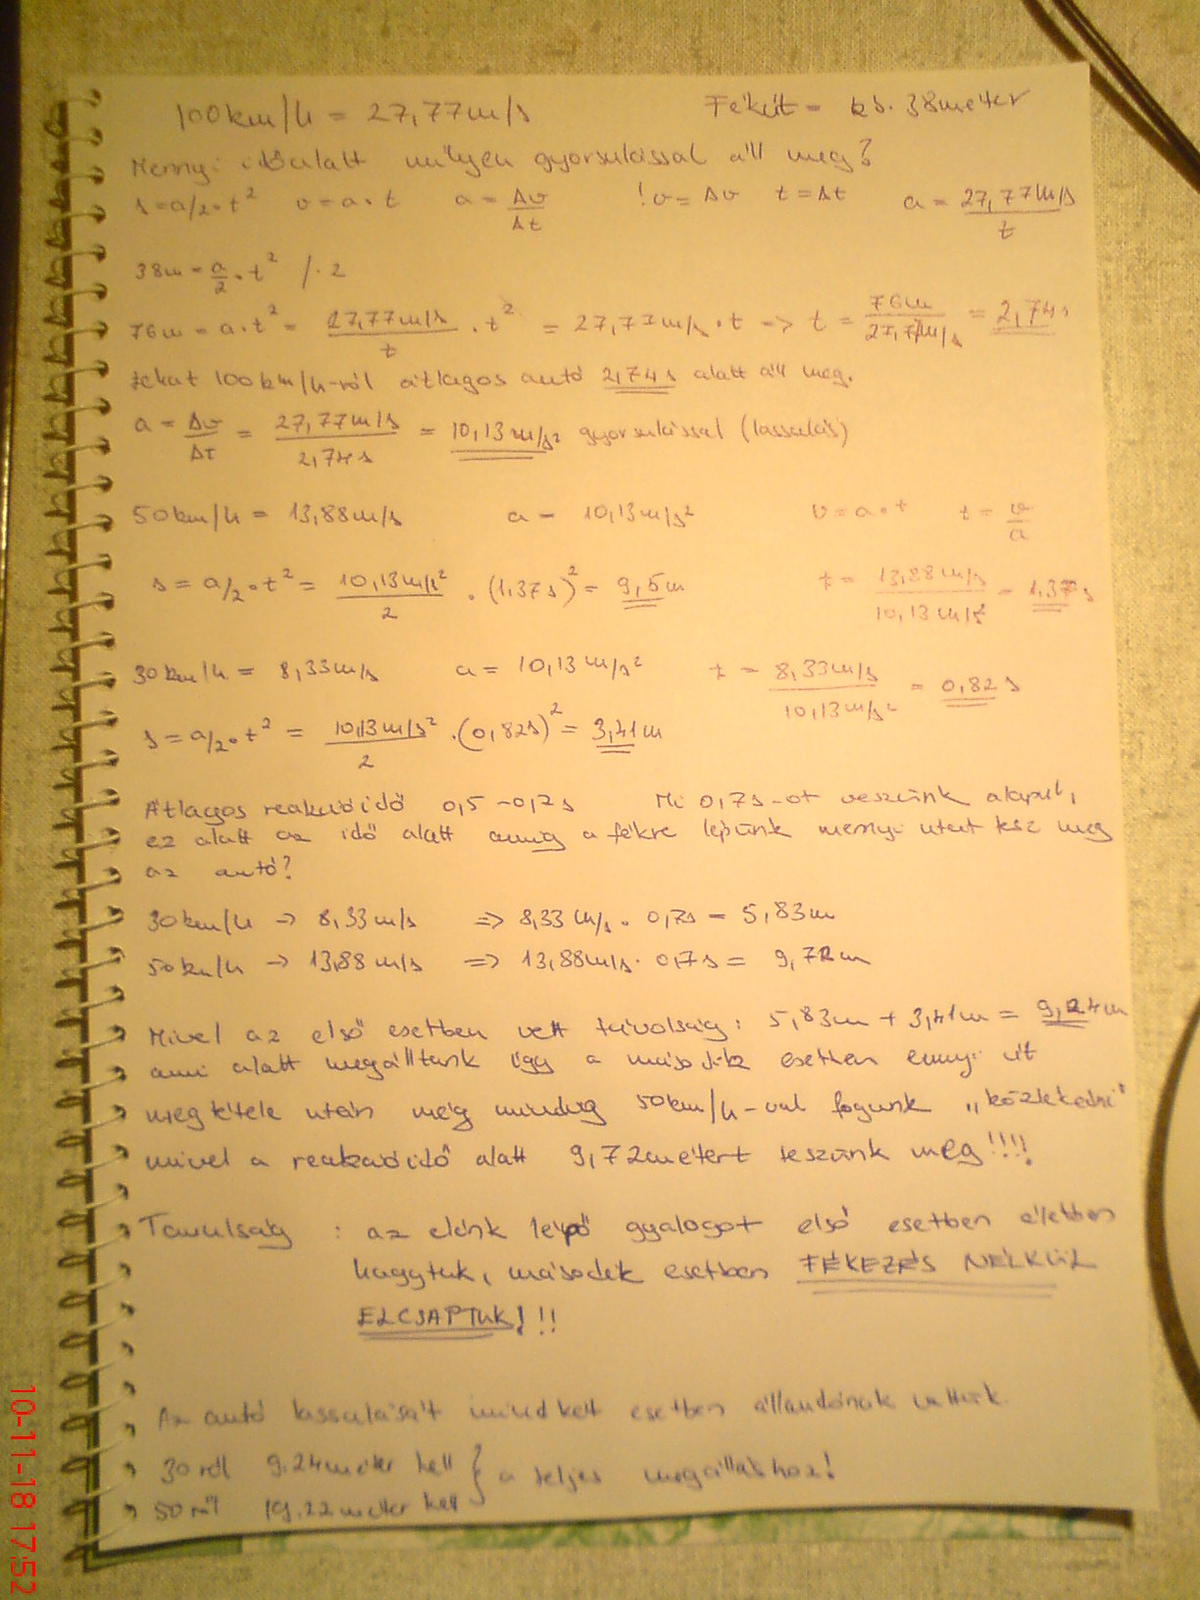 100km/h = 27,77m/s Fékút = kb. 38méter
Mennyi idő alatt milyen gyorsulással áll meg?
s=a/2·t² v=a·t a=Δv/Δt !v=Δv t=Δt a=27,77m/s/t
38m=a/2·t² /·2
76m=a·t²=27,77m/s/t·t²=27,77m/s·t => t=76m/27,77m/s=2,74s
tehát 100km/h-ról átlagos autó 2,74s alatt áll meg.
a=Δv/Δt=27,77m/s/2,74s=10,13m/s² gyorsulással (lassulás)
50km/h = 13,88m/s a = 10,13m/s² v=a·t t=v/a
s=a/2·t²=10,13m/s²/2·(1,37s)²=9,5m t=13,88m/s/10,13m/s²=1,37s
30km/h = 8,33m/s a=10,13m/s² t=8,33m/s/10,13m/s²=0,82s
s=a/2·t²=10,13m/s²/2·(0,82s)²=3,41m
Átlagos reakcióidő 0,5-0,7s Mi 0,7s-ot veszünk alapul,
ez alatt az idő alatt amíg a fékre lépünk mennyi utat tesz meg
az autó?
30km/h -> 8,33m/s => 8,33m/s·0,7s=5,83m
50km/h -> 13,88m/s => 13,88m/s·0,7s=9,72m
Mivel az első esetben vett távolság: 5,83m+3,41m=9,24m
ami alatt megálltunk úgy a második esetben ennyi út
megtétele után még mindig 50km/h-val fogunk „közlekedni"
mivel a reakcióidő alatt 9,72métert teszünk meg!!!!
Tanulság : az elénk lépő gyalogot első esetben életben
hagytuk, második esetben FÉKEZÉS NÉLKÜL
ELCSAPTUK!!!
Az autó lassulását mindkét esetben állandónak vettük.
30ról 9.24méter kell } a teljes megálláshoz!
50ről 19.22méter kell
10-11-18 17:52